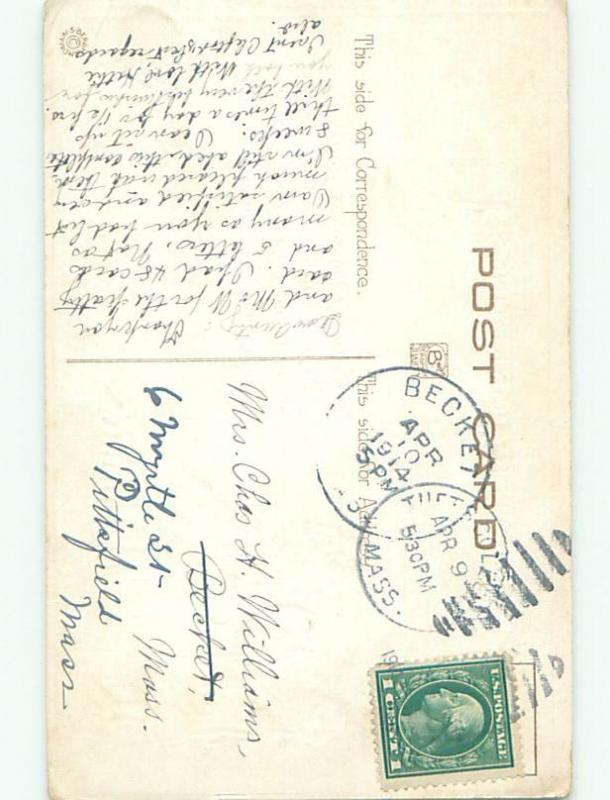 POST CARD
This side for Correspondence.
This side for Ad
Dear Aunty:
Thank you
and Mr W for the pretty
card. I had 48 cards
and 5 letters. Not as
many as you had but
I am satisfied and very
much pleased with them.
I'm still abed, this completes
8 weeks. I can sit up
three times a day for 1/2 hrs.
With the very best wishes for
you both. With love, Hattie
Aunt Clapton's best regards
also.
BECKET
APR
10
1914
5 PM
MASS.
APR 9
5:30 PM
19
U.S. POSTAGE
1 CENT 1
Mrs. Chas H. Williams,
Becket,
Mass.
6 Myrtle St
Pittsfield
Mass